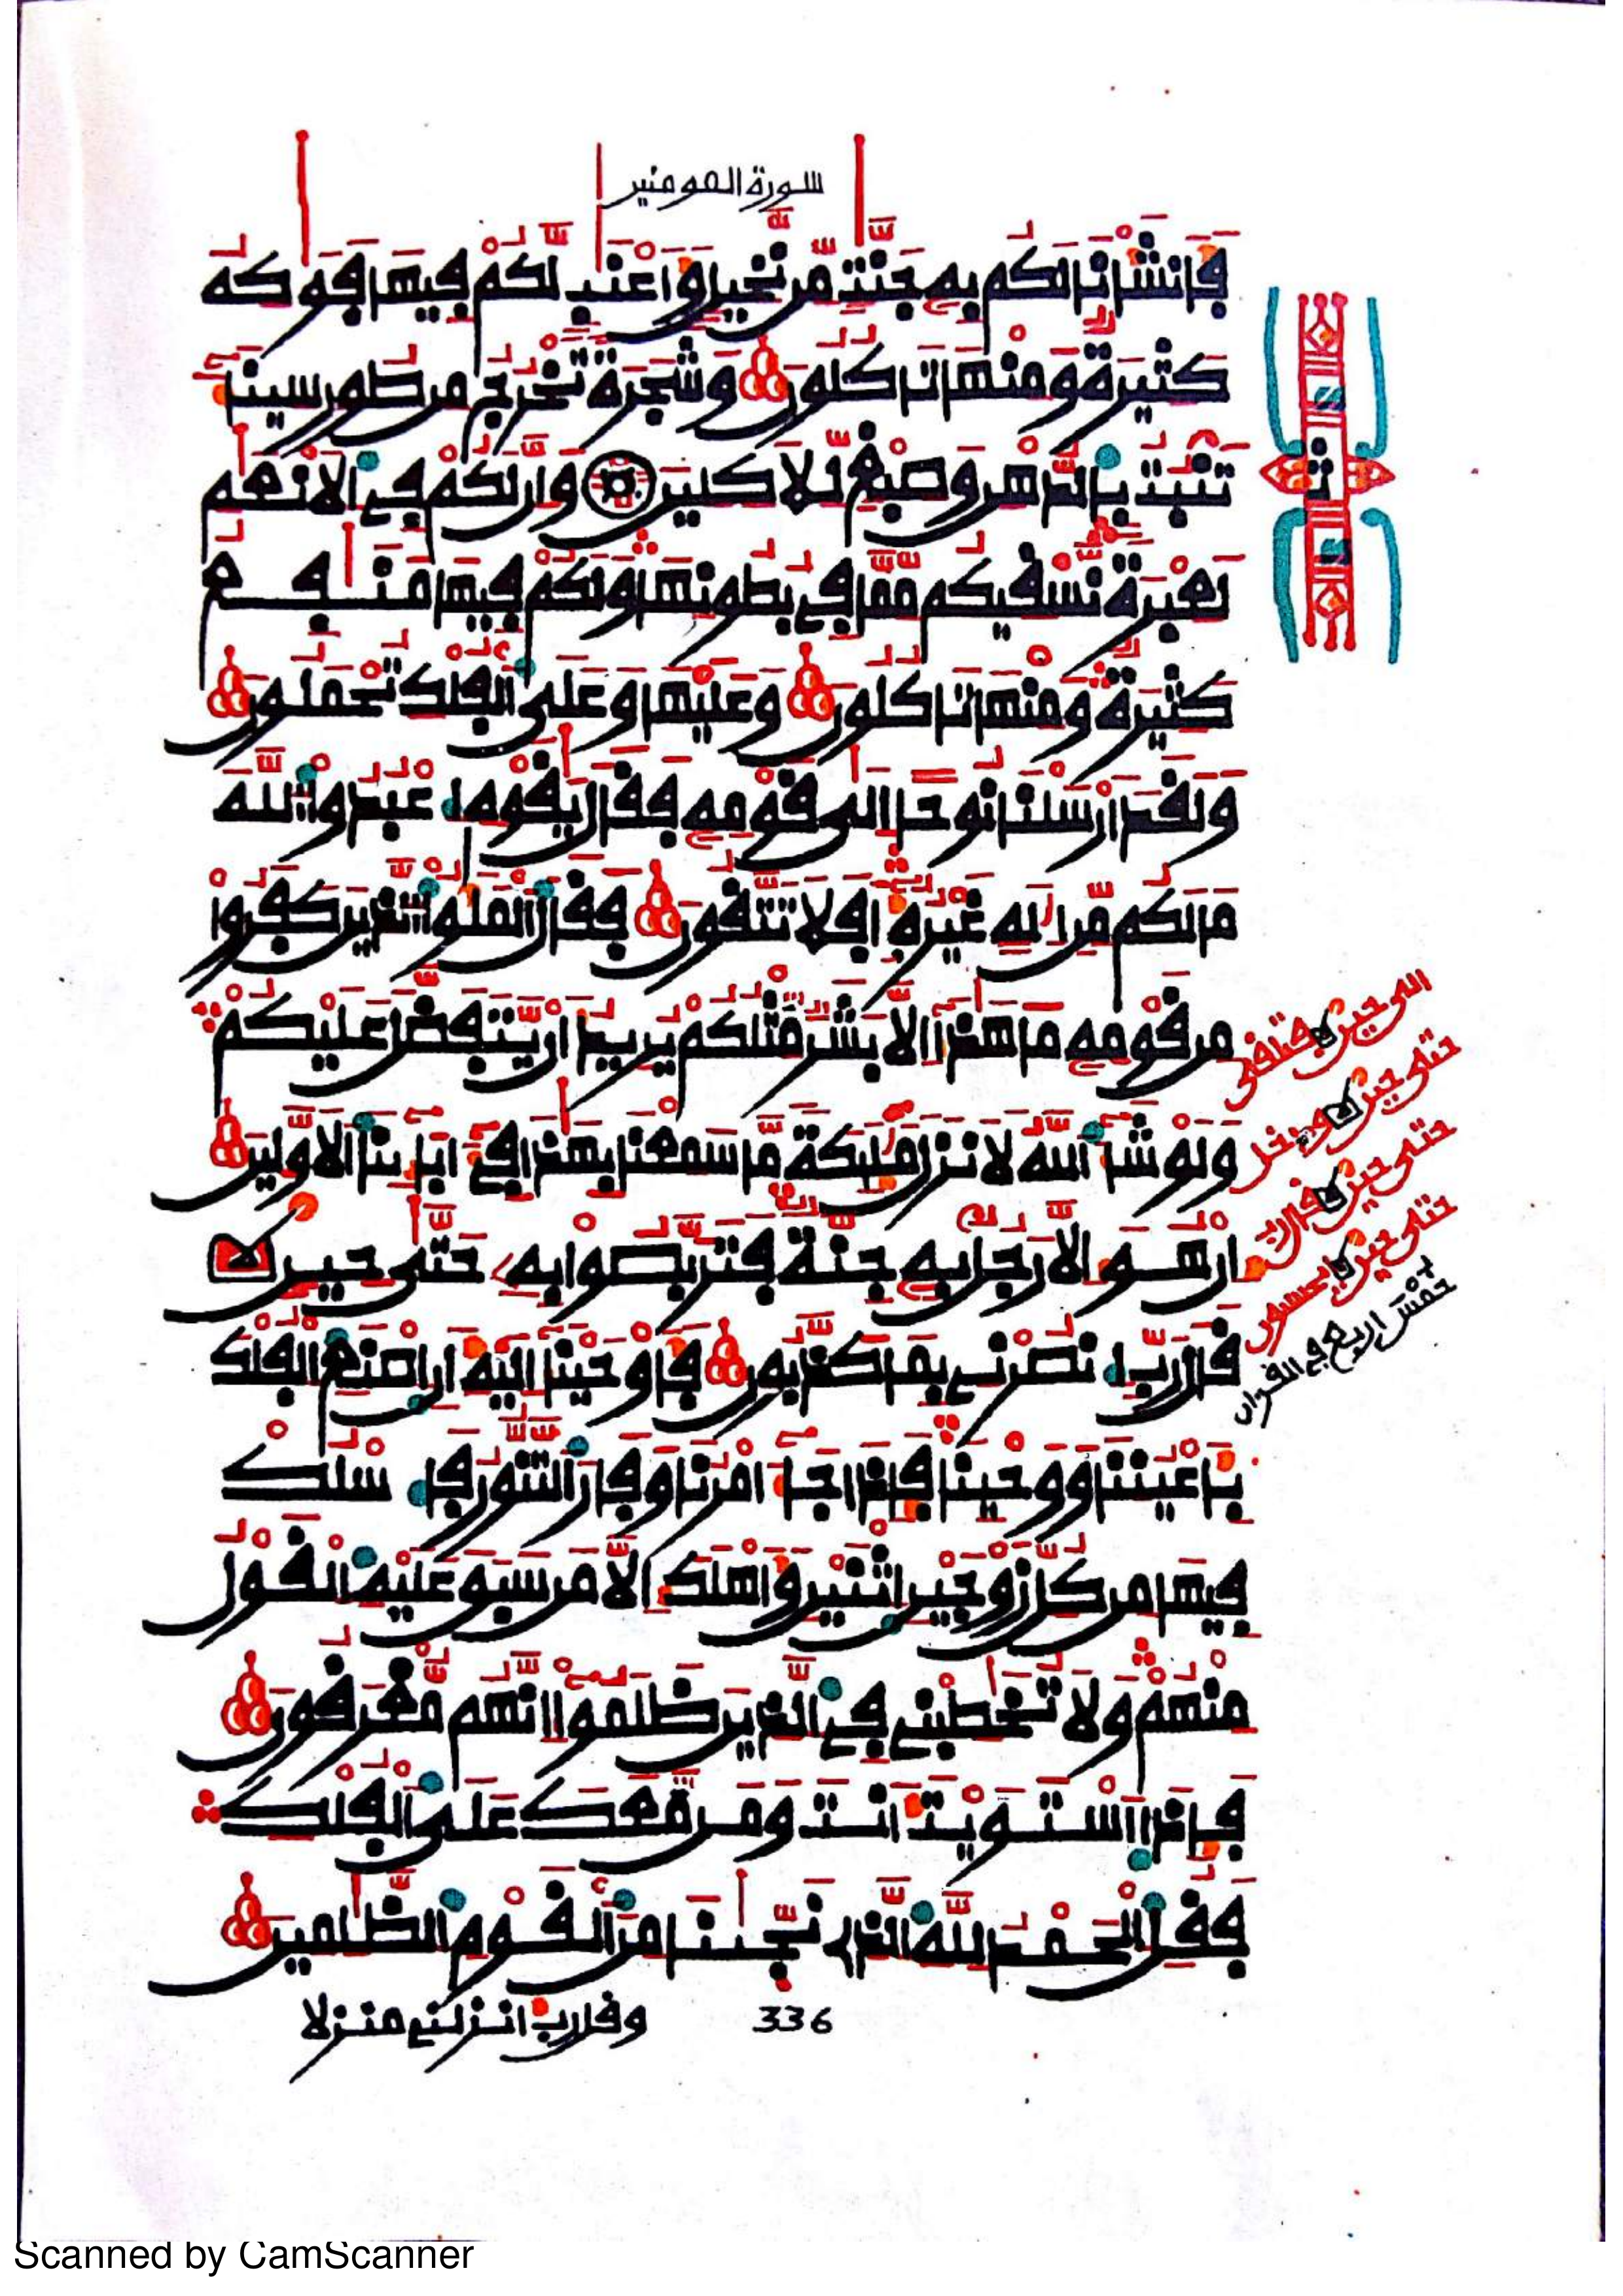 سورة المومنين
فأنشأنا لكم به جنت من نخيل وأعنب لكم فيها فوكه
كثيرة ومنها تاكلون وشجرة تخرج من طور سيناء
تنبت بالدهن وصبغ للاكلين وإن لكم في الانعم
لعبرة نسقيكم مما في بطونها ولكم فيها منفع
كثيرة ومنها تاكلون وعليها وعلى الفلك تحملون
ولقد ارسلنا نوحا الى قومه فقال يقوم اعبدوا الله
ما لكم من اله غيره افلا تتقون فقال الملؤا الذين كفروا
من قومه ما هذا الا بشر مثلكم يريد ان يتفضل عليكم
ولو شاء الله لانزل مليكة ما سمعنا بهذا في ءابائنا الاولين
ان هو الا رجل به جنة فتربصوا به حتى حين
قال رب انصرني بما كذبون فأوحينا اليه ان اصنع الفلك
بأعيننا ووحينا فإذا جاء امرنا وفار التنور فاسلك
فيها من كل زوجين اثنين وأهلك الا من سبق عليه القول
منهم ولا تخطبني في الذين ظلموا انهم مغرقون
فإذا استويت انت ومن معك على الفلك
فقل الحمد لله الذي نجينا من القوم الظلمين
وقل رب انزلني منزلا
336
ث
الى حين فاستفتهم
حتى حين
حتى حين قال رب
حتى حين ايحسبون
اربع في القرءان
Scanned by CamScanner